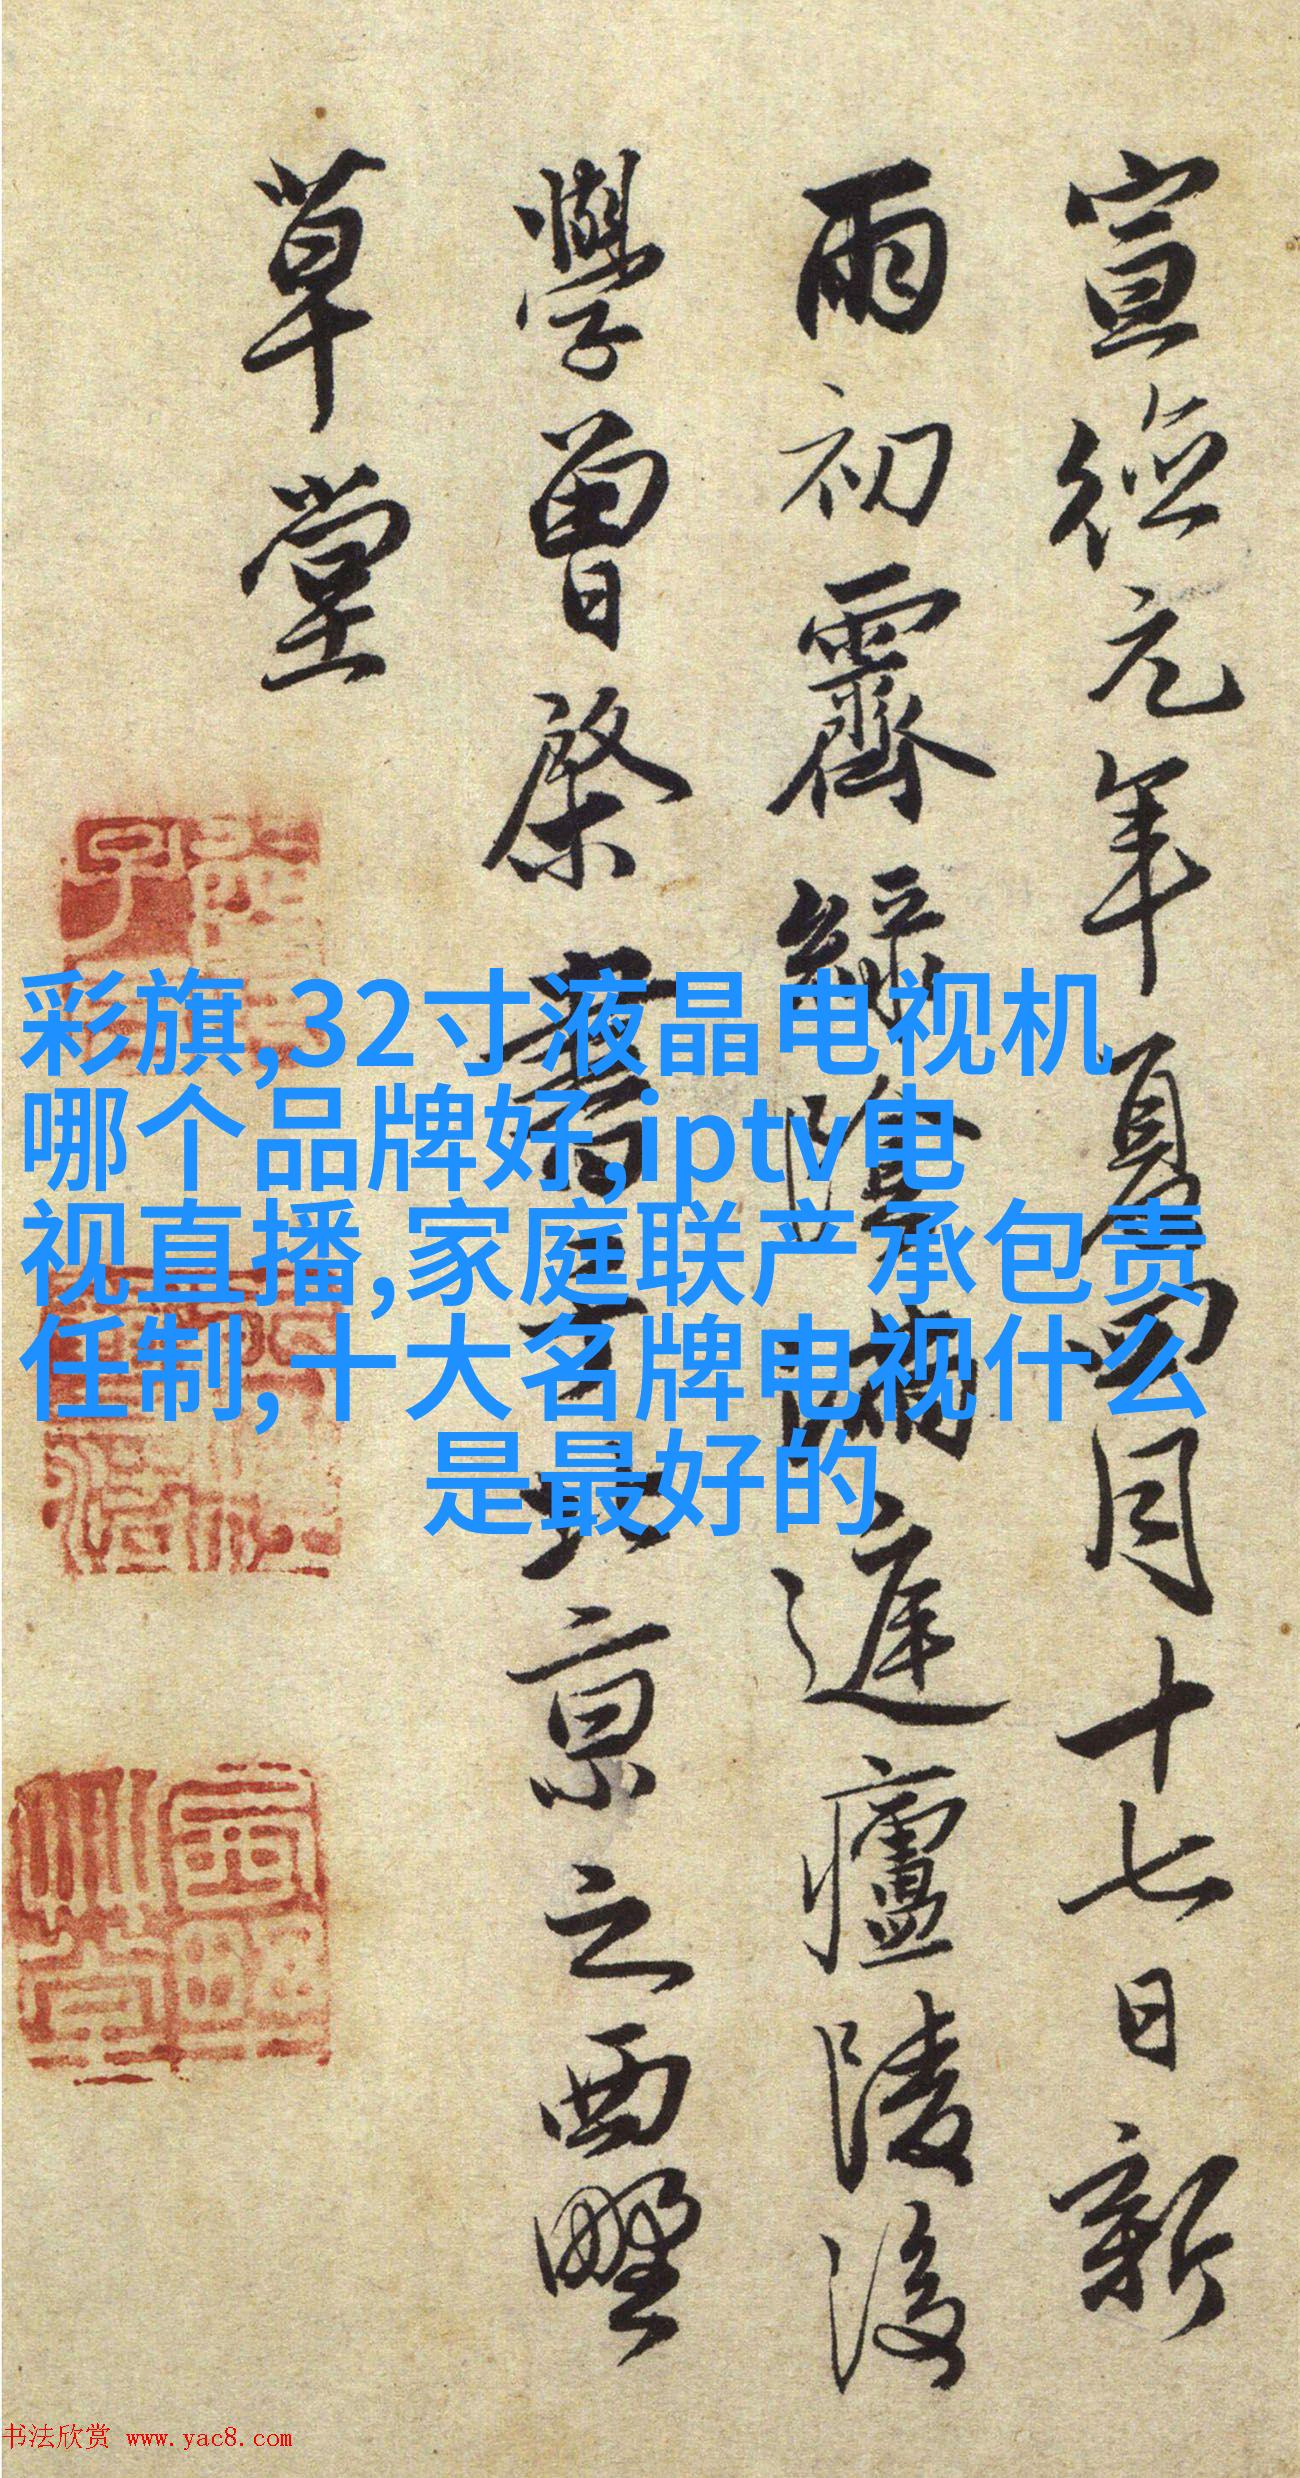 宣德元年夏四月十七日新
雨初霽綠陰滿庭廬陵後
學曾棨書于北京之西墅
草堂
彩旗,32寸液晶电视机
哪个品牌好,iptv电
视直播,家庭联产承包责
任制,十大名牌电视什么
是最好的
书法欣赏 www.yac8.com